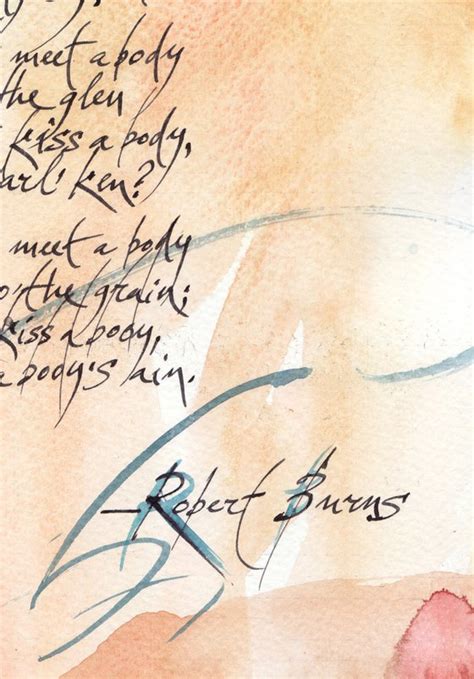 meet a body
the glen
kiss a body,
arl' ken?
meet a body
o' the grain;
kiss a body,
a body's ain.
—Robert Burns